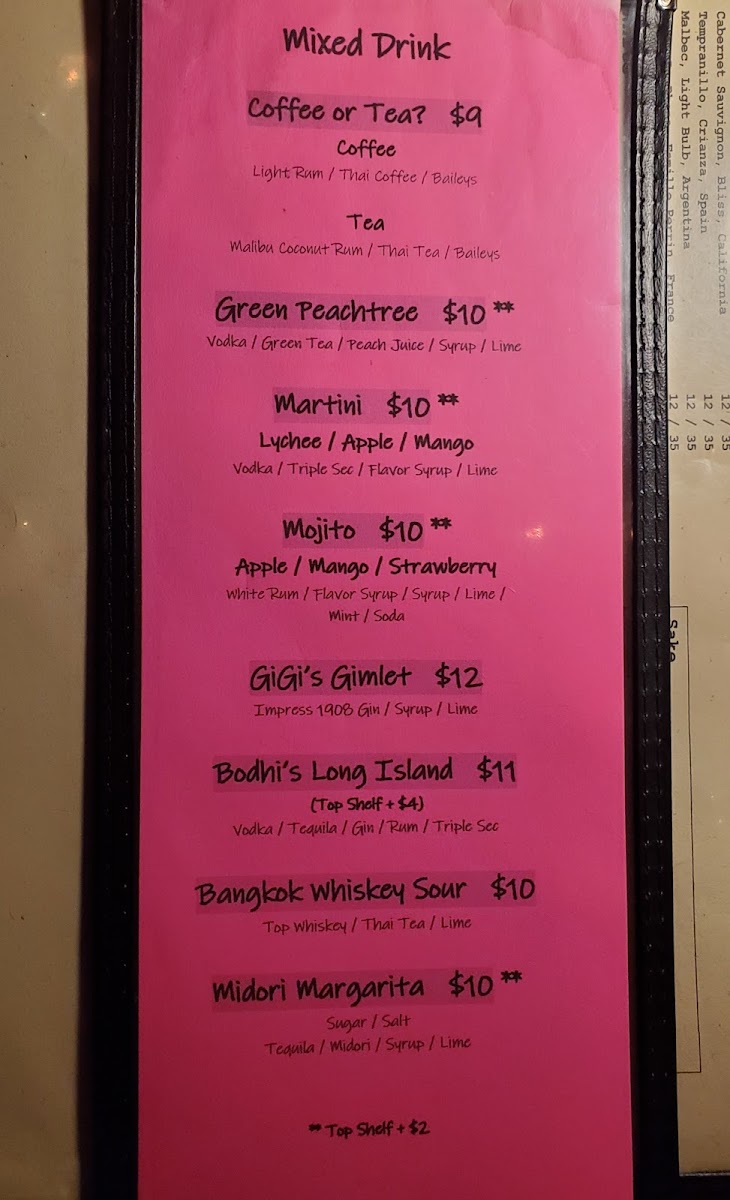 Mixed Drink
Coffee or Tea? $9
Coffee
Light Rum / Thai Coffee / Baileys
Tea
Malibu Coconut Rum / Thai Tea / Baileys
Green Peachtree $10 **
Vodka / Green Tea / Peach Juice / Syrup / Lime
Martini $10 **
Lychee / Apple / Mango
Vodka / Triple Sec / Flavor Syrup / Lime
Mojito $10 **
Apple / Mango / Strawberry
White Rum / Flavor Syrup / Syrup / Lime /
Mint / Soda
GiGi's Gimlet $12
Impress 1908 Gin / Syrup / Lime
Bodhi's Long Island $11
(Top Shelf + $4)
Vodka / Tequila / Gin / Rum / Triple Sec
Bangkok Whiskey Sour $10
Top Whiskey / Thai Tea / Lime
Midori Margarita $10 **
Sugar / Salt
Tequila / Midori / Syrup / Lime
** Top Shelf + $2
Cabernet Sauvignon, Bliss, California 12 / 35
Tempranillo, Crianza, Spain 12 / 35
Malbec, Light Bulb, Argentina 12 / 35
France 12 / 35
Sake